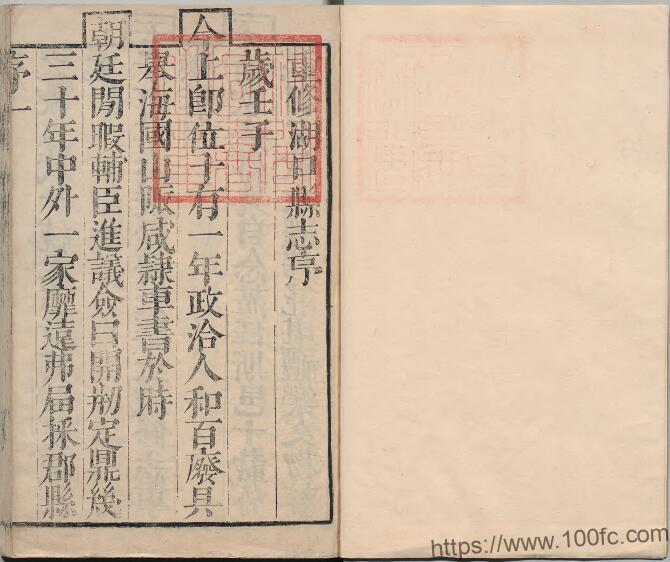 重修湖口縣志序
歲壬子
今上卽位十有一年政洽人和百廢具
舉海國山陬咸隸車書於時
朝廷閒暇輔臣進議僉曰開刱定鼎幾
三十年中外一家靡遠弗屆採郡縣
序一
https://www.100fc.com